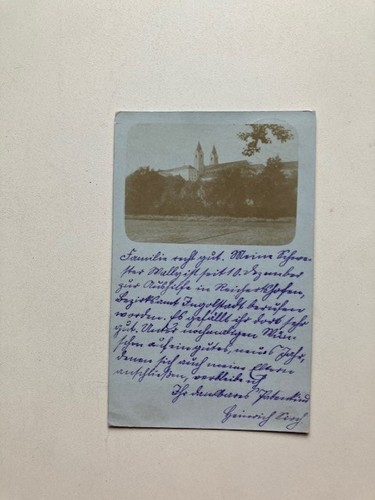 Familie recht gut. Meine Schwe-
ster Wally ist seit 10. Dezember
zur Aushilfe in Reichertshofen,
Bezirksamt Ingolstadt berufen
worden. Es gefällt ihr dort sehr
gut. Unter nochmaligen Wün-
schen auf ein gutes, neues Jahr,
denen sich auch meine Eltern
anschließen, verbleibe ich
Ihr dankbares Patenkind
Heinrich